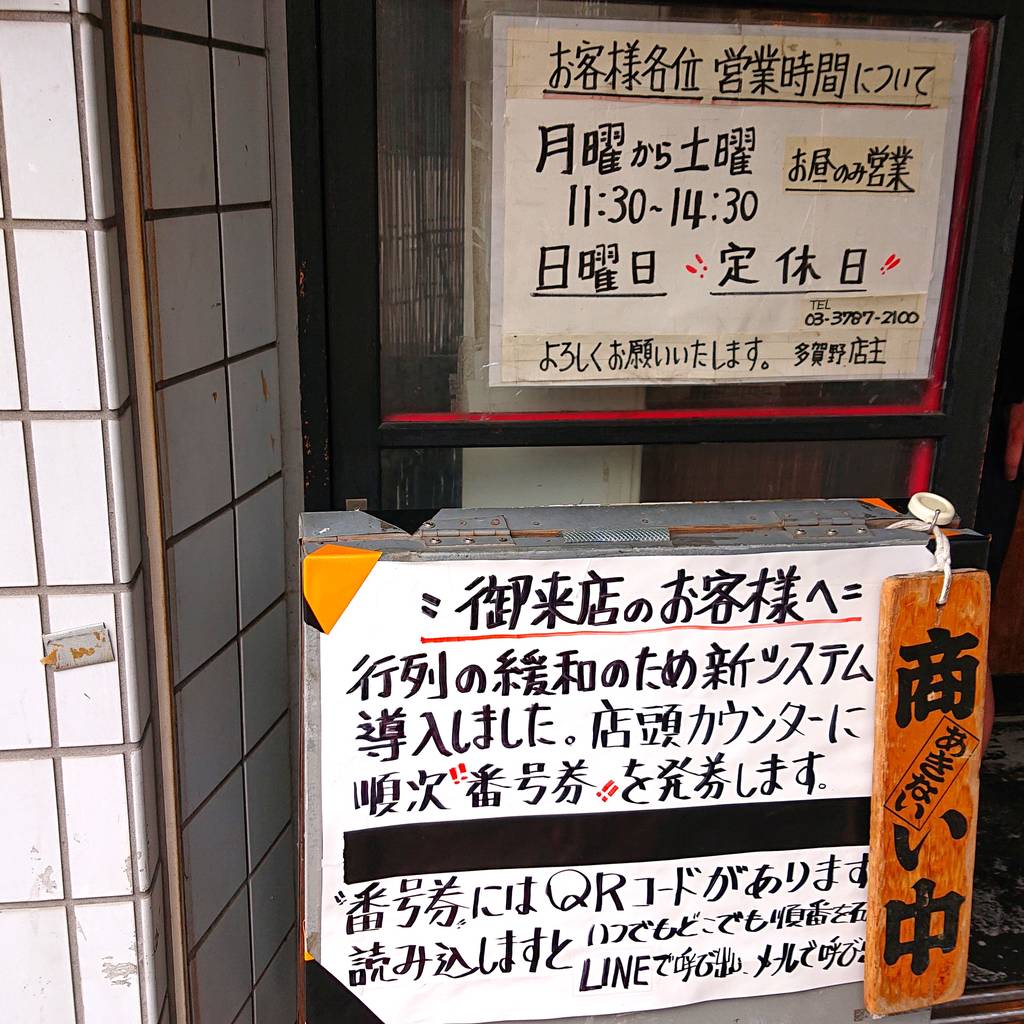 お客様各位 営業時間について
月曜から土曜 お昼のみ営業
11:30~14:30
日曜日 定休日
TEL
03-3787-2100
よろしくお願いいたします。 多賀野店主
御来店のお客様へ
行列の緩和のため新システム
導入しました。店頭カウンターに
順次"番号券"を発券します。
"番号券"にはQRコードがあります
読み込しますと いつでもどこでも順番を
LINEで呼び出、メールで呼び
商い中
あきない